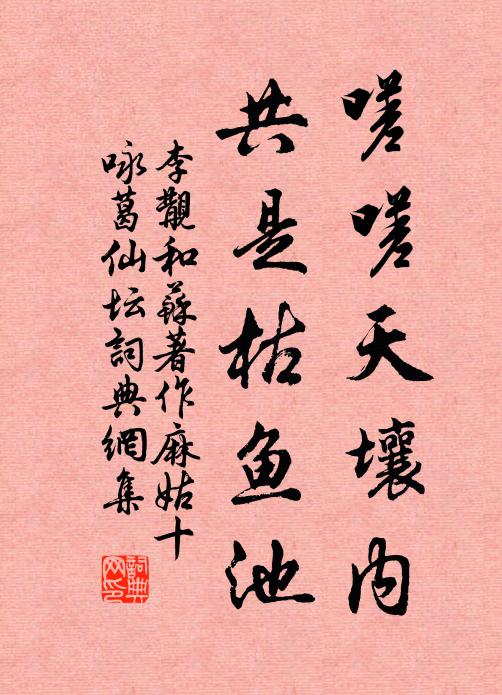 嗟嗟天壤内
共是枯鱼池
李觀和蘇著作麻姑十
咏葛仙坛詞典網集
詞典网印